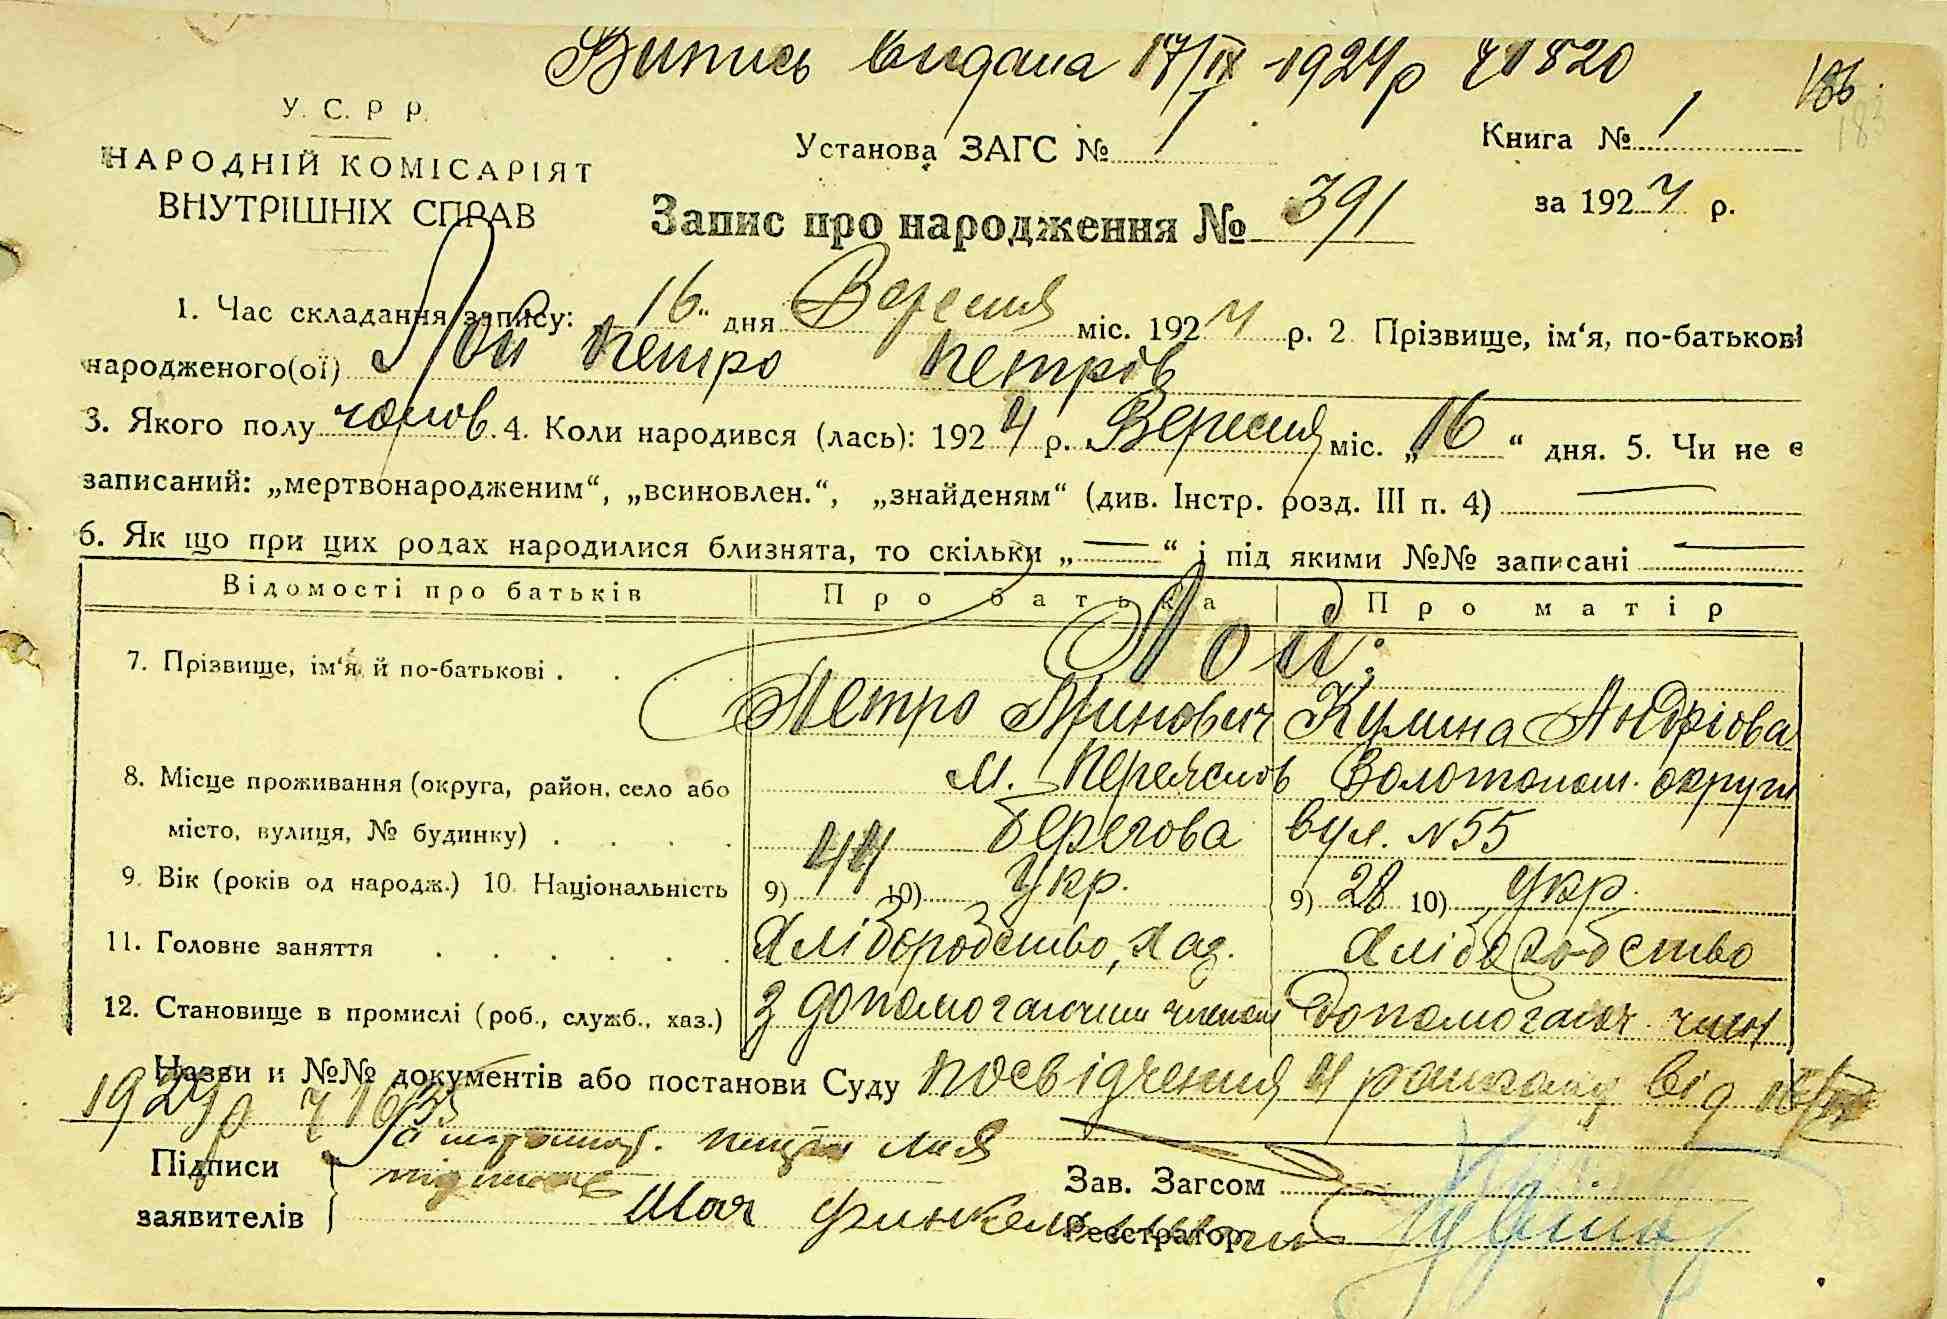 Випись видана 17/IX 1924 р ч 1820
186
183
У. С. Р Р.
НАРОДНІЙ КОМІСАРІЯТ
ВНУТРІШНІХ СПРАВ
Установа ЗАГС № 1
Книга № 1
за 1924 р.
Запис про народження № 391
1. Час складання запису: 16 „ дня Вересня міс. 1924 р. 2 Прізвище, ім‘я, по-батькові
народженого(ої) Лой Петро Петрів
3. Якого полу чолов. 4. Коли народився (лась): 1924 р. Вересня міс. „16“ дня. 5. Чи не є
записаний: „мертвонародженим“, „всиновлен.“, „знайденям“ (див. Інстр. розд. III п. 4) —
6. Як що при цих родах народилися близнята, то скільки „—“ і під якими №№ записані —
Відомості про батьків Про батька Про матір
7. Прізвище, ім‘я й по-батькові . . Лой:
Петро Минович Килина Андріова
8. Місце проживання (округа, район, село або м. Переяслов Золотоніш. округи
місто, вулиця, № будинку) . . . . Берегова вул. № 55
9. Вік (років од народж.) 10. Національність 9) 44 10) Укр. 9) 28 10) Укр.
11. Головне заняття . . . . . . Хлібородство, хаз. Хліборобство
12. Становище в промислі (роб., служб., хаз.) з допомогаючим членом Допомогаюч. член
Назви и №№ документів або постанови Суду посвідчення 4 райкому від 16/IX
1924 р ч 1635
Підписи
заявителів
За
підписав
Шая
Зав. Загсом
Реєстратор